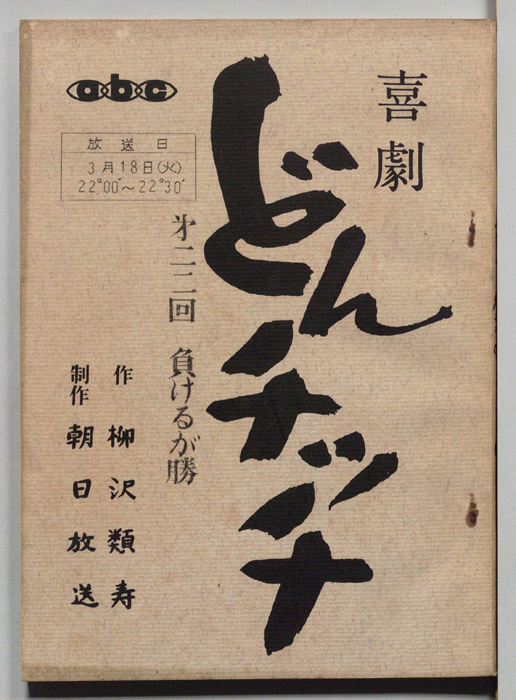 喜劇
どんチッチ
abc
放送日
3月18日(火)
22°00′~22°30′
才二二回 負けるが勝
作 柳沢類寿
制作 朝日放送